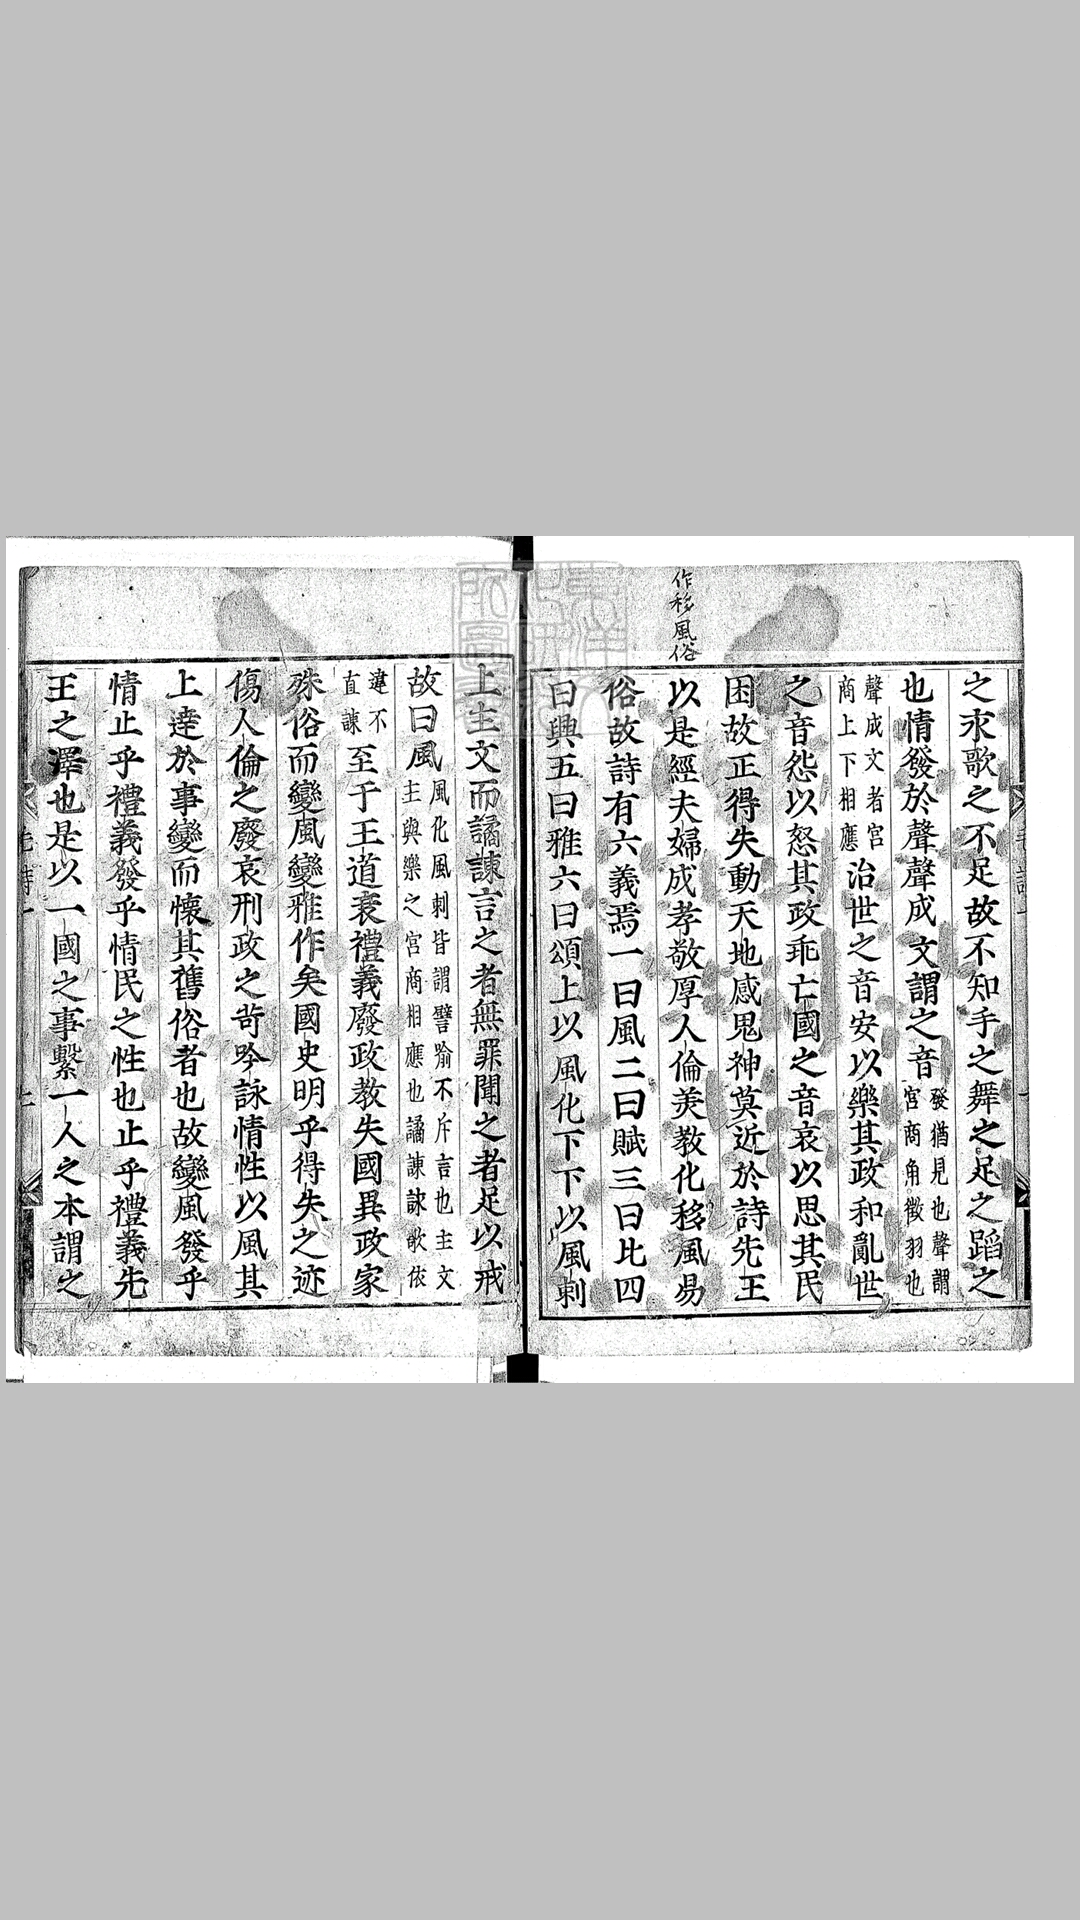 作移風俗
之求歌之不足故不知手之舞之足之蹈之
也情發於聲聲成文謂之音發猶見也聲謂宮商角徵羽也
聲成文者宮商上下相應治世之音安以樂其政和亂世
之音怨以怒其政乖亡國之音哀以思其民
困故正得失動天地感鬼神莫近於詩先王
以是經夫婦成孝敬厚人倫美教化移風易
俗故詩有六義焉一曰風二曰賦三曰比四
曰興五曰雅六曰頌上以風化下下以風刺
上主文而譎諫言之者無罪聞之者足以戒
故曰風風化風刺皆謂譬喻不斥言也主文主與樂之宮商相應也譎諫詠歌依
違不直諫至于王道衰禮義廢政教失國異政家
殊俗而變風變雅作矣國史明乎得失之迹
傷人倫之廢哀刑政之苛吟詠情性以風其
上達於事變而懷其舊俗者也故變風發乎
情止乎禮義發乎情民之性也止乎禮義先
王之澤也是以一國之事繫一人之本謂之